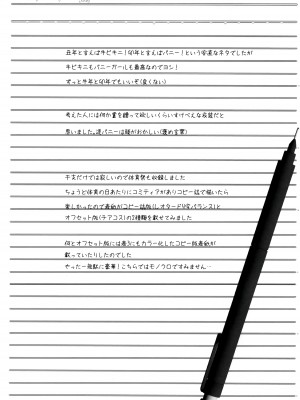 丑年と言えば牛ビキニ！卯年と言えばバニー！という安直なネタでしたが
牛ビキニもバニーガールも最高なのでヨシ！
ずっと牛年と卯年でもいいぞ（良くない）
考えた人には何か賞を贈って欲しいくらいすけべえな衣装だと
思いました。逆バニーは頭がおかしい（褒め言葉）
干支だけでは寂しいので体育祭も収録しました
ちょうど体育の日あたりにコミティアがありコピー誌で描いたら
楽しかったので表紙がコピー誌版（レオタードVSバランス）と
オフセット版（チアコス）の2種類を載せてみました
何とオフセット版には巻頭にもカラー化したコピー版表紙が
載っていたりしたのでした
やったー無駄に豪華！こちらではモノクロですみません…